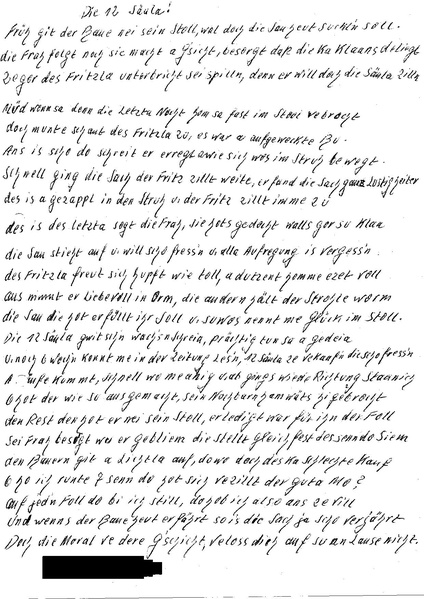 Die 12 Säula!
Früh git der Baue nei sein Stoll, wal doch die Sau heut such'n soll.
die Frah folgt noch sie macht a G'sicht, besorgt daß die Ka Klaans
des Fritzla unterbricht sei spilln, denn er will doch die Säula zilln
Müd wenn sa denn die Letzta Nacht hom sa fast im Stoel verbrocht
doch munte schaut des Fritzla zu, es war a aufgeweckte Bu.
Ans is scho do schreit er erregt wie sich wos im Struh bewegt.
Schnell ging die Sach der Fritz zillt weite, er fand die Sach ganz Lustig heiter
des is a gezappl in den Struh u. der Fritz zillt imme zu
des is des letzta sogt die Frah, sie hots gedacht walls gor su Klan
die Sau stieht auf u. will scho fress'n u. alla Aufregung is vergess'n.
des Fritzla freut sich hupft wie toll, a dutzent homme ezet voll
aus nimmt er liebevoll in Orm, die andern hält der Strohle worm
die Sau die hot erfüllt ihr Soll u. su wos nennt me Glück im Stoll.
Die 12 Säula wachs'n prächtig tun su a gedeia
u. noch 6 Woch'n konnt me in der Zeitung Les'n, 12 Säula ze vekauf'n die scho fress'n
Kommt, schnell wo me anig u. ab gings wiede Richtung
6 hot der wie su ausgemacht, sein Nachbarn hamwäts
den Rest den hot er nei sein Stoll, erledigt war für ihn der Foll
Sei Frah besorgt wu er gebliem die stellt gleich fest des senn do Siem
den Bauern git a Lichtla auf, do wo doch des Ka schlechte Kauf
6 ho ich runte 7 senn do hot sich vezillt der guta Mo?
auf jedn Foll do bi ich still, do hob ich also ans ze vill
Und wenns der Baue heut erfährt so is die Sach ja scho verjährt
Doch die Moral ve dere G'schicht, veloss dich auf su an Lause nicht.